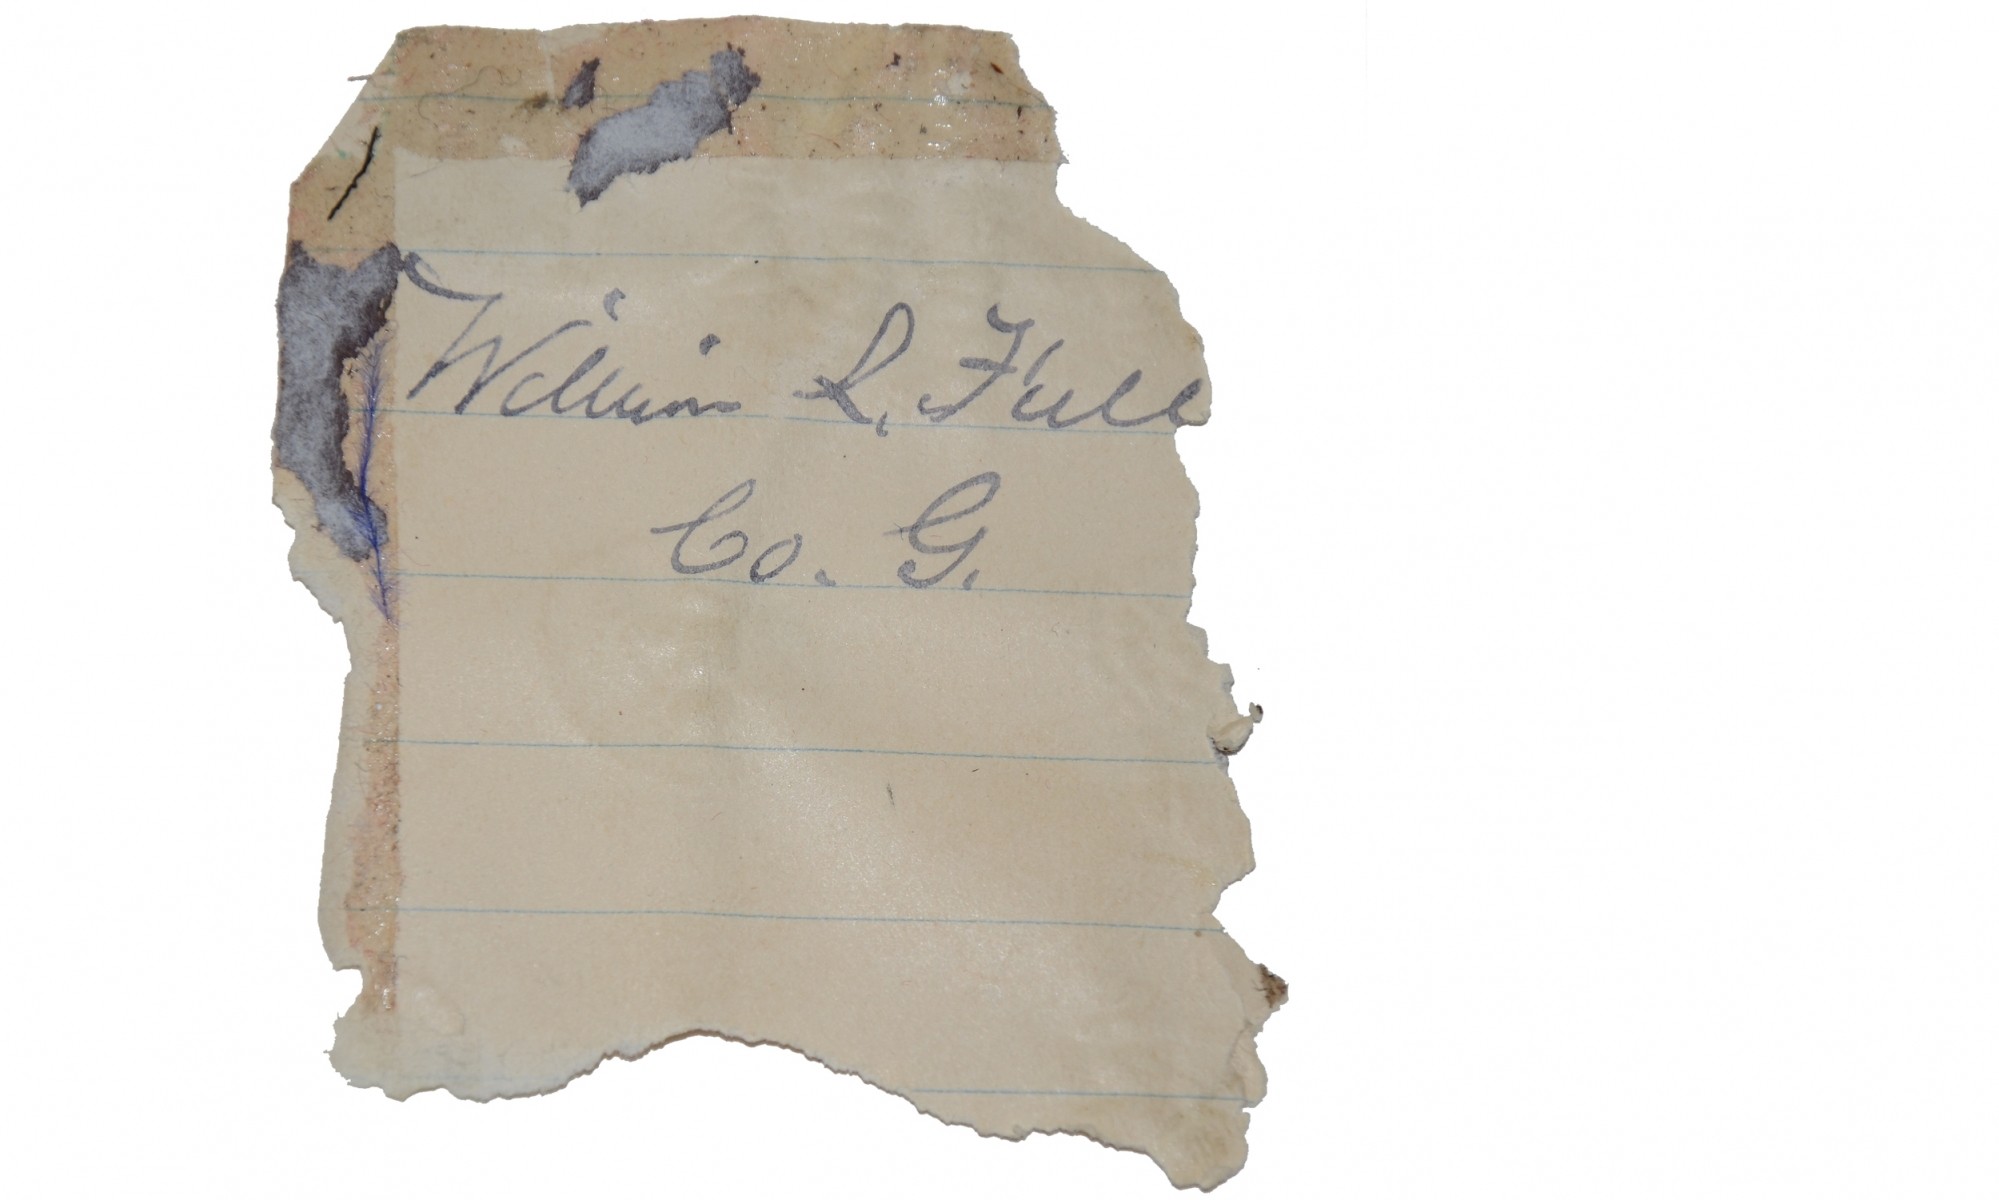 William L. Full
Co. G.